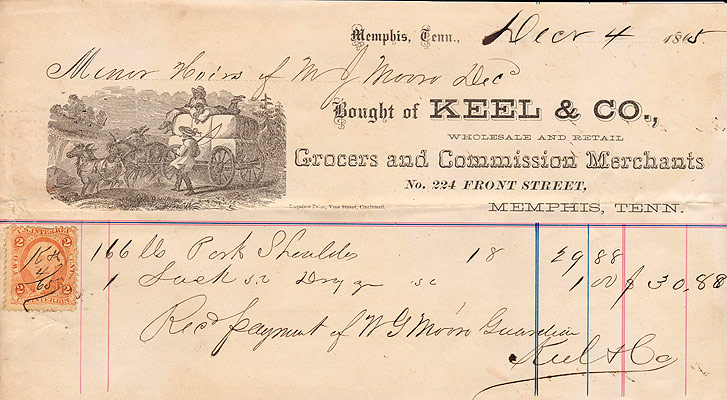 Memphis, Tenn., Decr 4 1865
Minor Heirs of M J Moore Decd
Bought of KEEL & CO.,
WHOLESALE AND RETAIL
Grocers and Commission Merchants
No. 224 FRONT STREET,
MEMPHIS, TENN.
Enquirer Print, Vine Street, Cincinnati.
166 lbs Pork Shoulders 18 29 88
1 Sack 1 00 $ 30.88
Recd payment of W G Moore Guardian
Keel & Co
2 2
K & Co
4
65
2 2